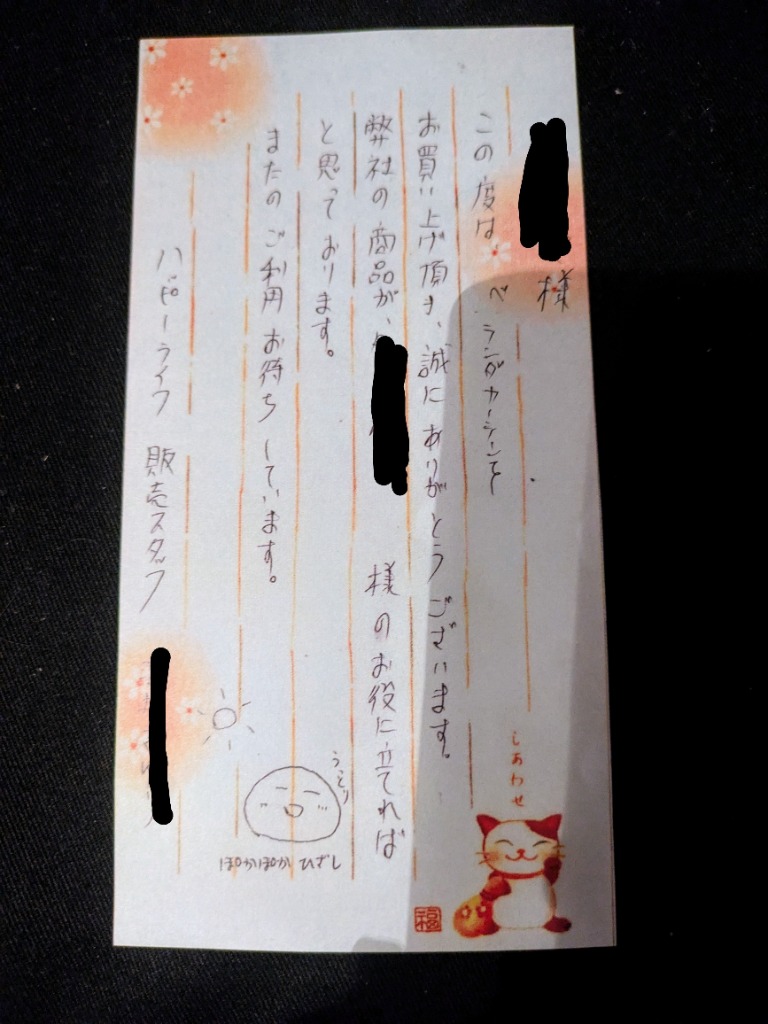 様
この度は ベランダカーテンを
お買い上げ頂き、誠に ありがとうございます。
弊社の商品が、 様のお役に立てれば
と思っております。
またのご利用お待ちしています。
ハッピーライフ 販売スタッフ
うっとり
ぽかぽか ひざし
しあわせ
福